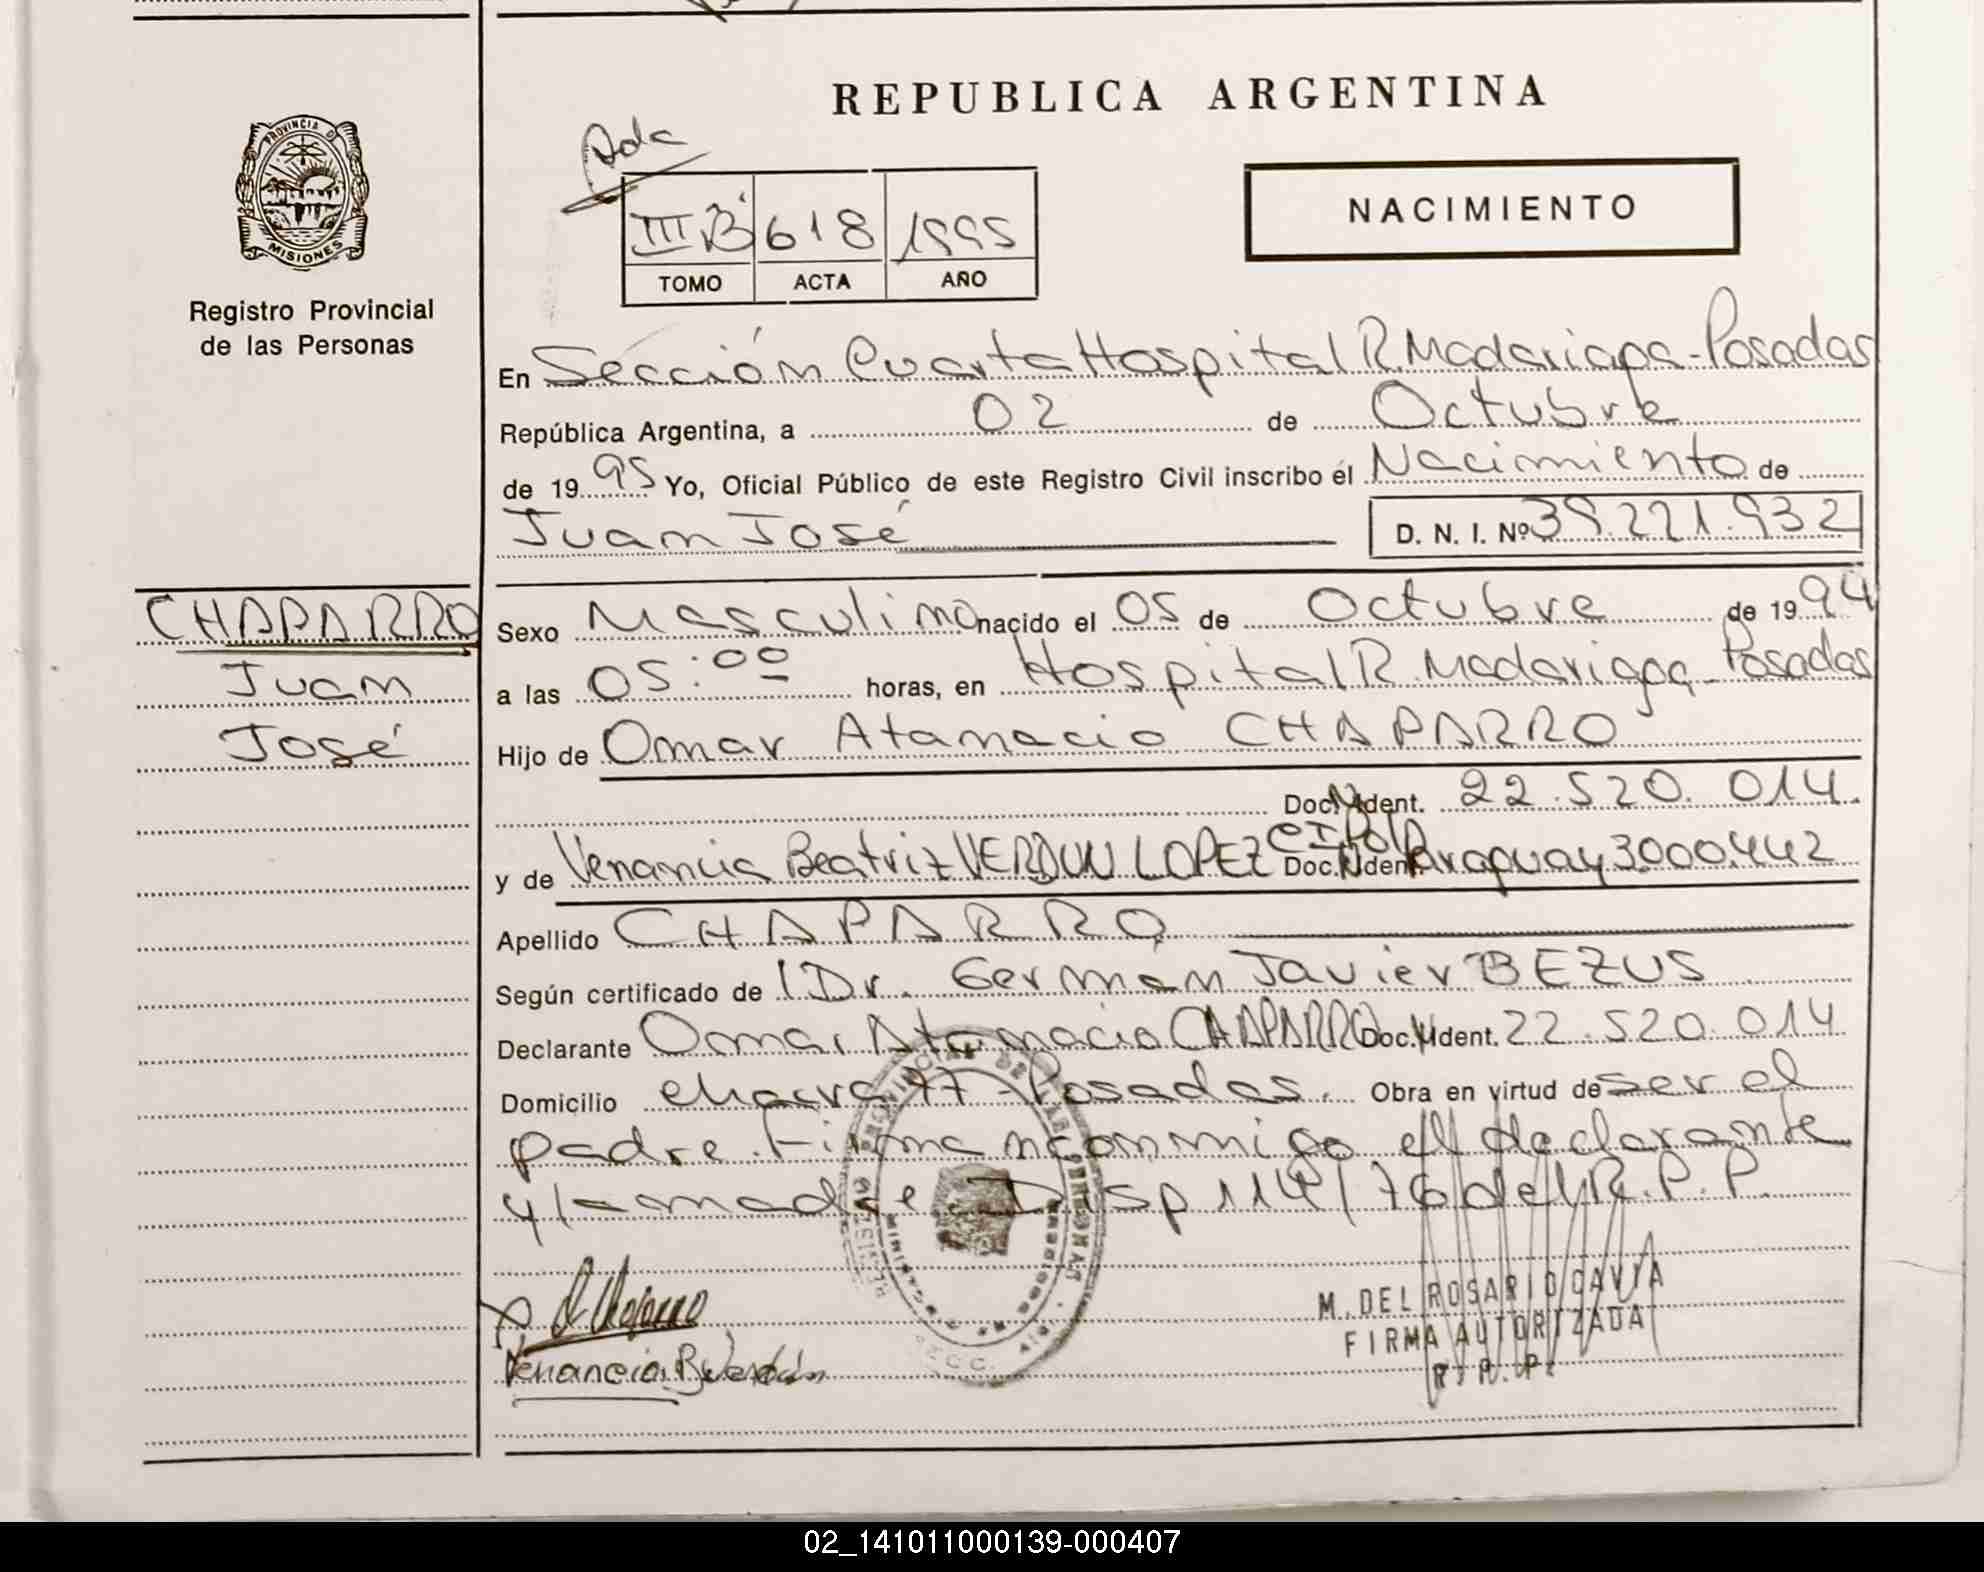 REPUBLICA ARGENTINA
PROVINCIA DE
MISIONES
Registro Provincial
de las Personas
III B 618 1995
TOMO ACTA AÑO
NACIMIENTO
En Sección Cuarta Hospital R. Madariaga - Posadas
República Argentina, a 02 de Octubre
de 1995 Yo, Oficial Público de este Registro Civil inscribo el Nacimiento de
Juan José D. N. I. Nº 39.221.932
CHAPARRO
Juan
José
Sexo Masculino nacido el 05 de Octubre de 1994
a las 05:00 horas, en Hospital R. Madariaga - Posadas
Hijo de Omar Atanacio CHAPARRO
Doc. Ident. 22.520.014
y de Venancia Beatriz VERDUN LOPEZ CI Pol Doc. Ident. Paraguay 3.000.442
Apellido CHAPARRO
Según certificado de Dr. Germán Javier BEZUS
Declarante Omar Atanacio CHAPARRO Doc. Ident. 22.520.014
Domicilio chacra 77 - Posadas. Obra en virtud de ser el
padre. Firman conmigo el declarante
y la madre Disp 114/76 del R.P.P.
Venancia B Verdún
M. DEL ROSARIO CAVIA
FIRMA AUTORIZADA
R. P. P.
02_141011000139-000407